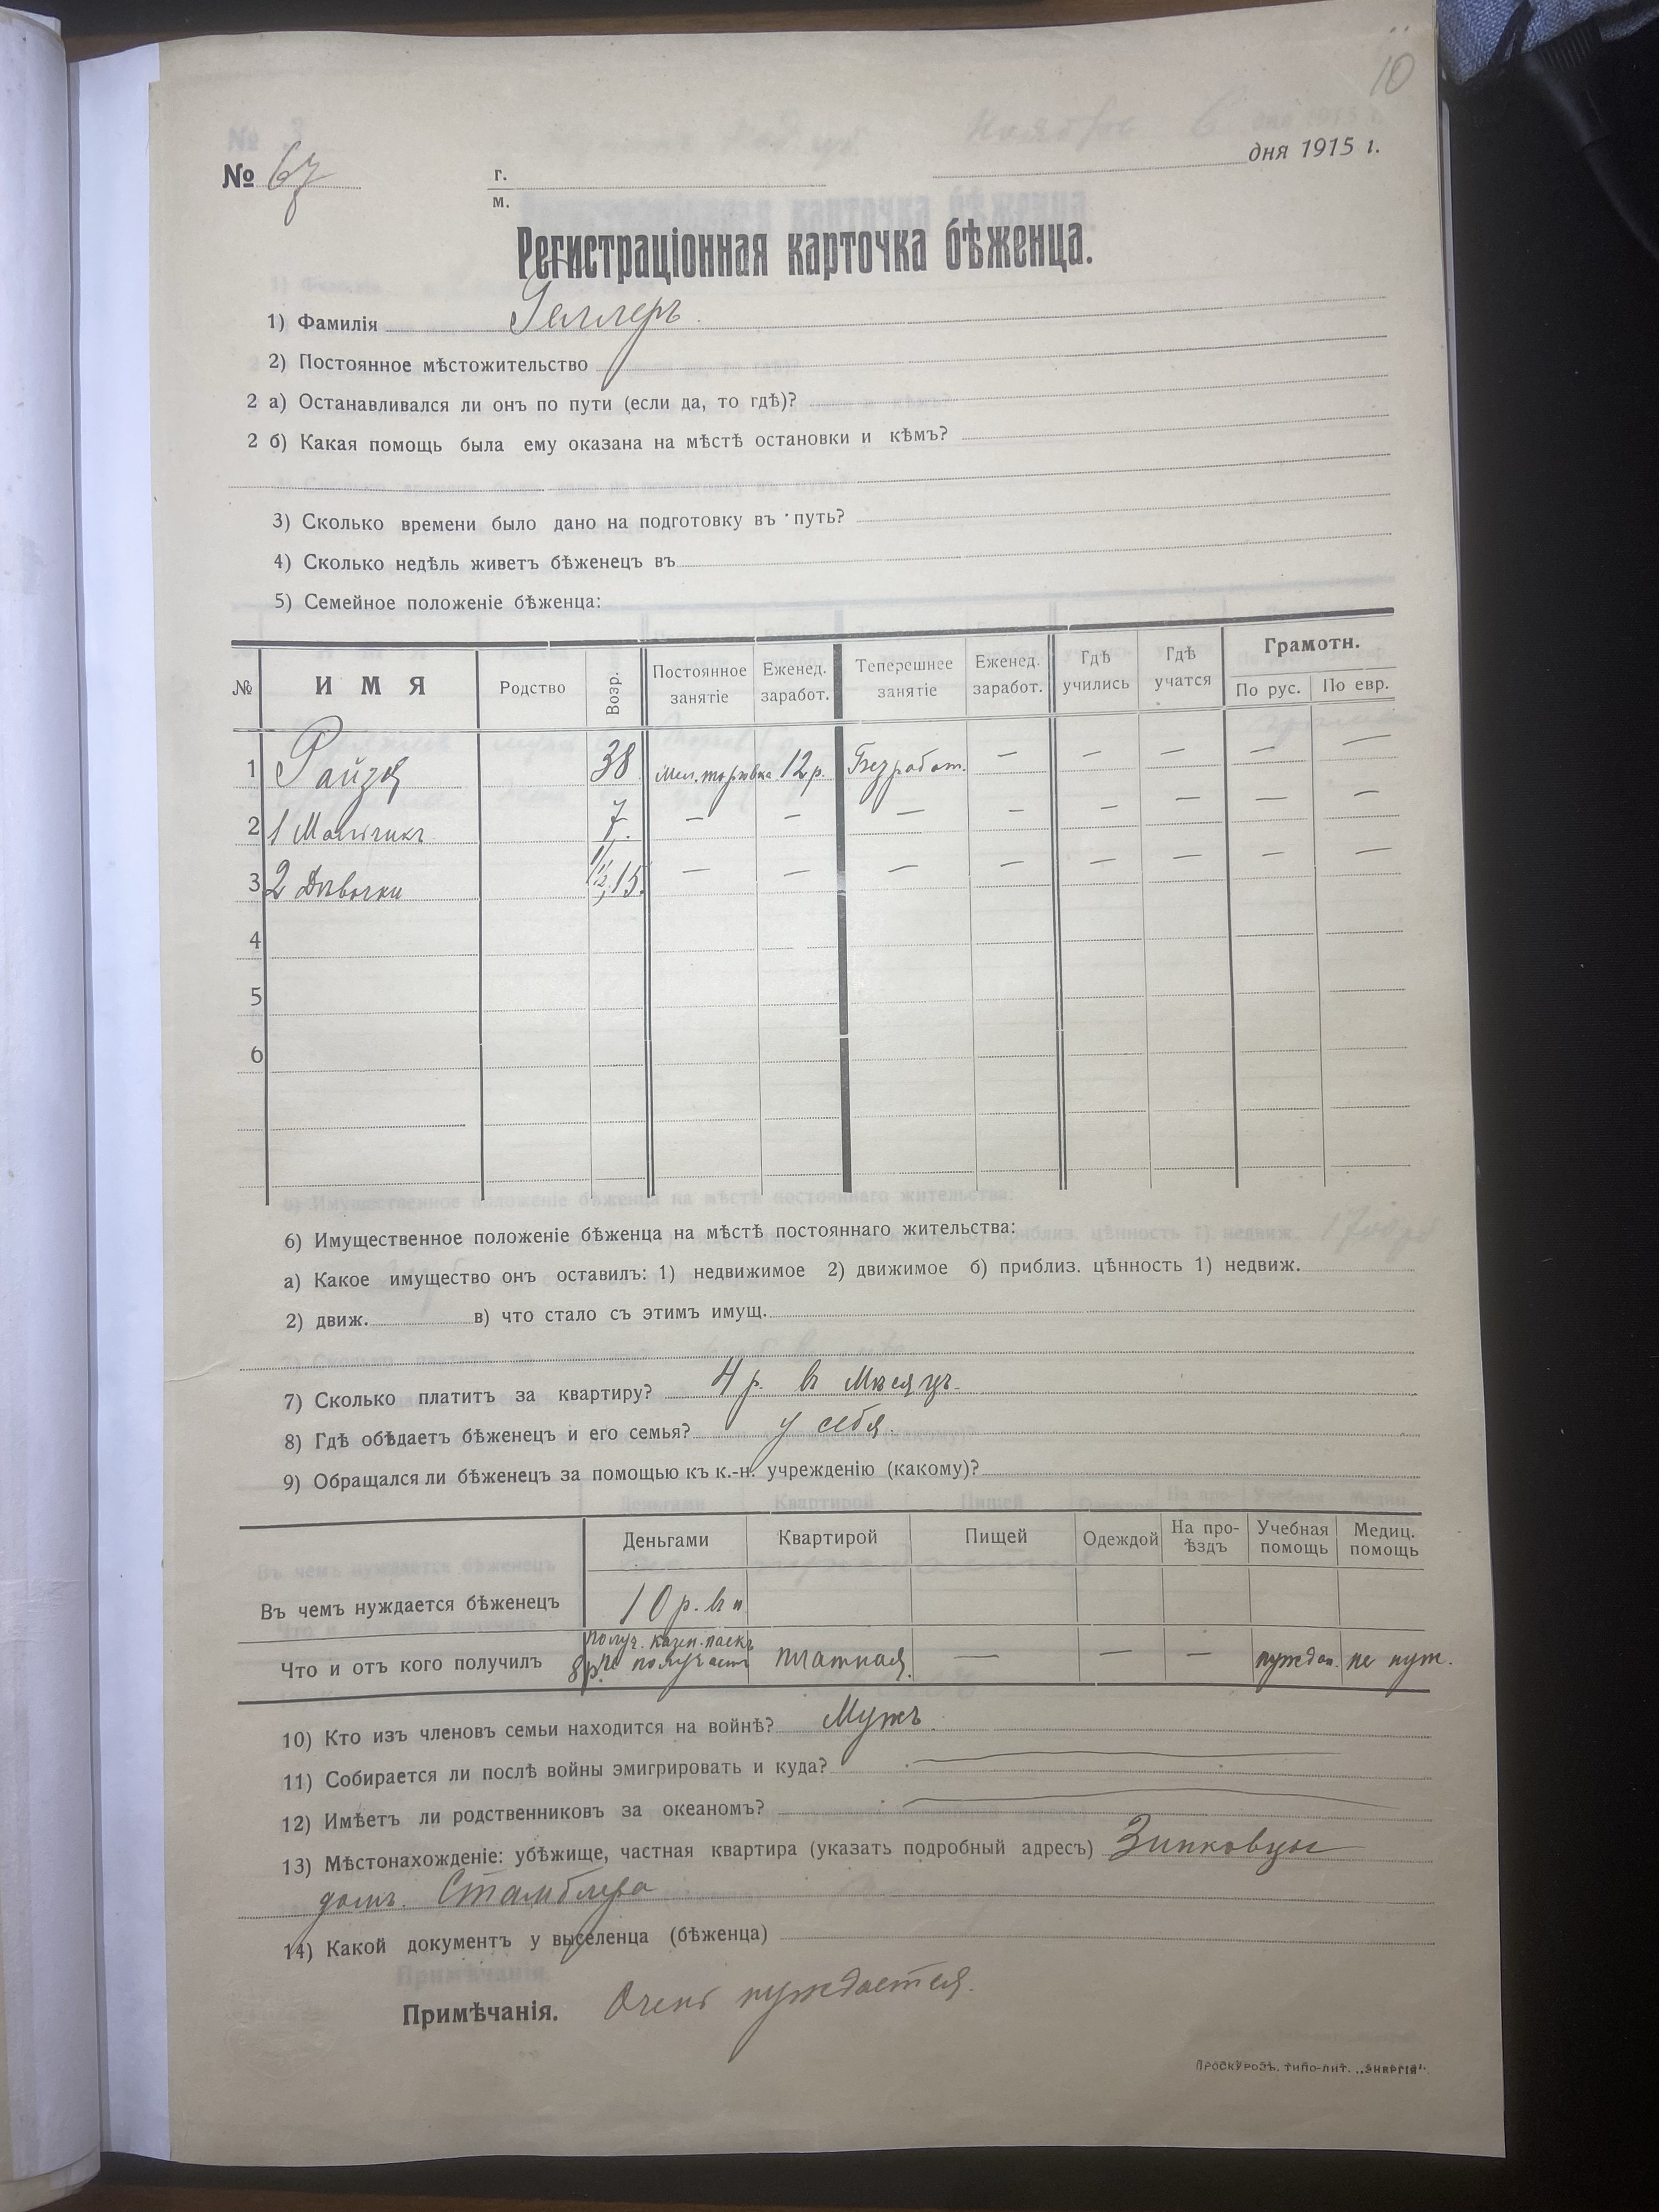 10
№ 67 г. м. дня 1915 г.
Регистраціонная карточка бѣженца.
1) Фамилія Геллеръ
2) Постоянное мѣстожительство
2 а) Останавливался ли онъ по пути (если да, то гдѣ)?
2 б) Какая помощь была ему оказана на мѣстѣ остановки и кѣмъ?
3) Сколько времени было дано на подготовку въ путь?
4) Сколько недѣль живетъ бѣженецъ въ
5) Семейное положеніе бѣженца:
№ ИМЯ Родство Возр. Постоянное занятіе Еженед. заработ. Теперешнее занятіе Еженед. заработ. Гдѣ учились Гдѣ учатся Грамотн. По рус. По евр.
1 Райзя 38 Мел. торговка 12 р. Безработ. — — — — —
2 1 Мальчикъ 7. — — — — — — — —
3 2 Дѣвочки 15. — — — — — — — —
4
5
6
6) Имущественное положеніе бѣженца на мѣстѣ постояннаго жительства:
а) Какое имущество онъ оставилъ: 1) недвижимое 2) движимое б) приблиз. цѣнность 1) недвиж.
2) движ. в) что стало съ этимъ имущ.
7) Сколько платитъ за квартиру? 4 р. въ Мѣсяцъ
8) Гдѣ обѣдаетъ бѣженецъ и его семья? у себя.
9) Обращался ли бѣженецъ за помощью къ к.-н. учрежденію (какому)?
Деньгами Квартирой Пищей Одеждой На про-ѣздъ Учебная помощь Медиц. помощь
Въ чемъ нуждается бѣженецъ 10 р. въ н
Что и отъ кого получилъ получ. казен. паекъ 8 р. получаетъ платная. — — — нуждал. не нуж.
10) Кто из членовъ семьи находится на войнѣ? Мужъ.
11) Собирается ли послѣ войны эмигрировать и куда?
12) Имѣетъ ли родственниковъ за океаномъ?
13) Мѣстонахожденіе: убѣжище, частная квартира (указать подробный адресъ) Зинковцы
домъ. Стамблера
14) Какой документъ у выселенца (бѣженца)
Примѣчанія. Очень нуждается.
Проскуровъ. Типо-лит. „Энергія".